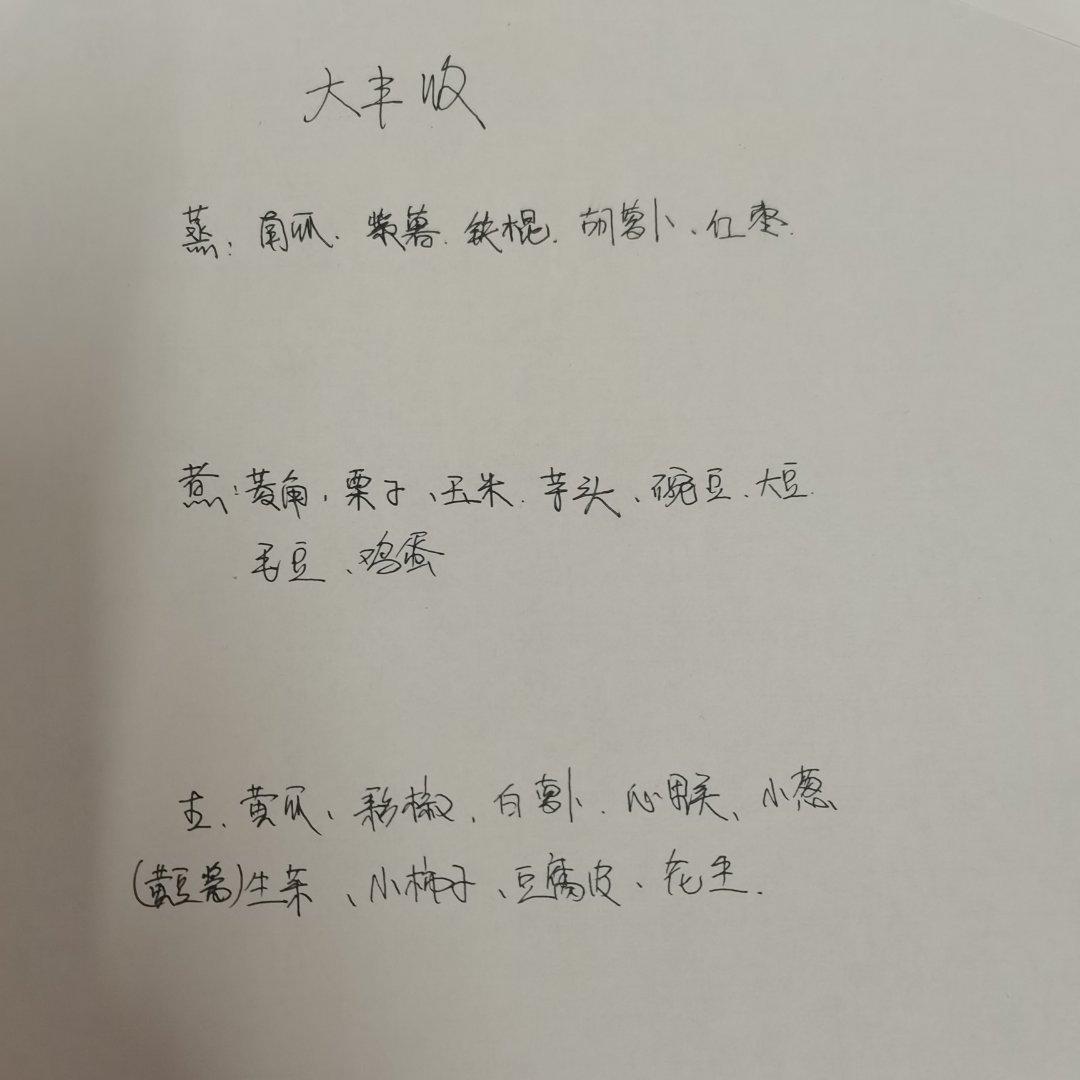 大丰收
蒸：南瓜、紫薯、铁棍、胡萝卜、红枣.
煮：菱角、栗子、玉米、芋头、豌豆、大豆
毛豆、鸡蛋
生、黄瓜、彩椒、白萝卜、心里美、小葱
(黄豆酱)生菜、小柿子、豆腐皮、花生.